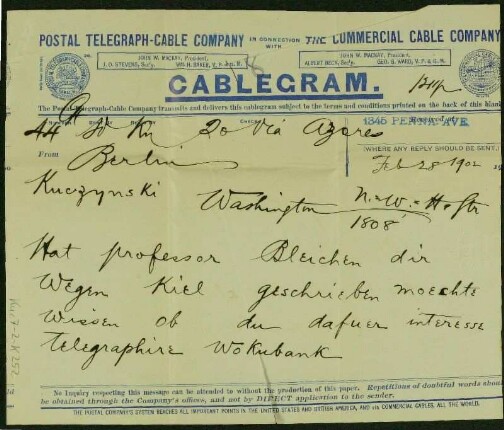 POSTAL TELEGRAPH-CABLE COMPANY IN CONNECTION WITH THE COMMERCIAL CABLE COMPANY
JOHN W. MACKAY, President. JOHN W. MACKAY, President.
J. O. STEVENS, Sec'y. WM. H. BAKER, V. P. & G. M. ALBERT BECK, Sec'y. GEO. G. WARD, V. P. & G. M.
CABLEGRAM.
The Postal Telegraph-Cable Company transmits and delivers this cablegram subject to the terms and conditions printed on the back of this blank
44 20 Via Azores
1345 PENNA AVE
(WHERE ANY REPLY SHOULD BE SENT.)
From Berlin
Feb 28 1902
Kuczynski
Washington N.=W.=
1808
Hat professor Bleichen dir
Wegen Kiel geschrieben moechte
Wissen ob du dafuer interesse
telegraphire Wokubank
No Inquiry respecting this message can be attended to without the production of this paper. Repetitions of doubtful words should
be obtained through the Company's offices, and not by DIRECT application to the sender.
THE POSTAL COMPANY'S SYSTEM REACHES ALL IMPORTANT POINTS IN THE UNITED STATES AND BRITISH AMERICA, AND via COMMERCIAL CABLES, ALL THE WORLD.